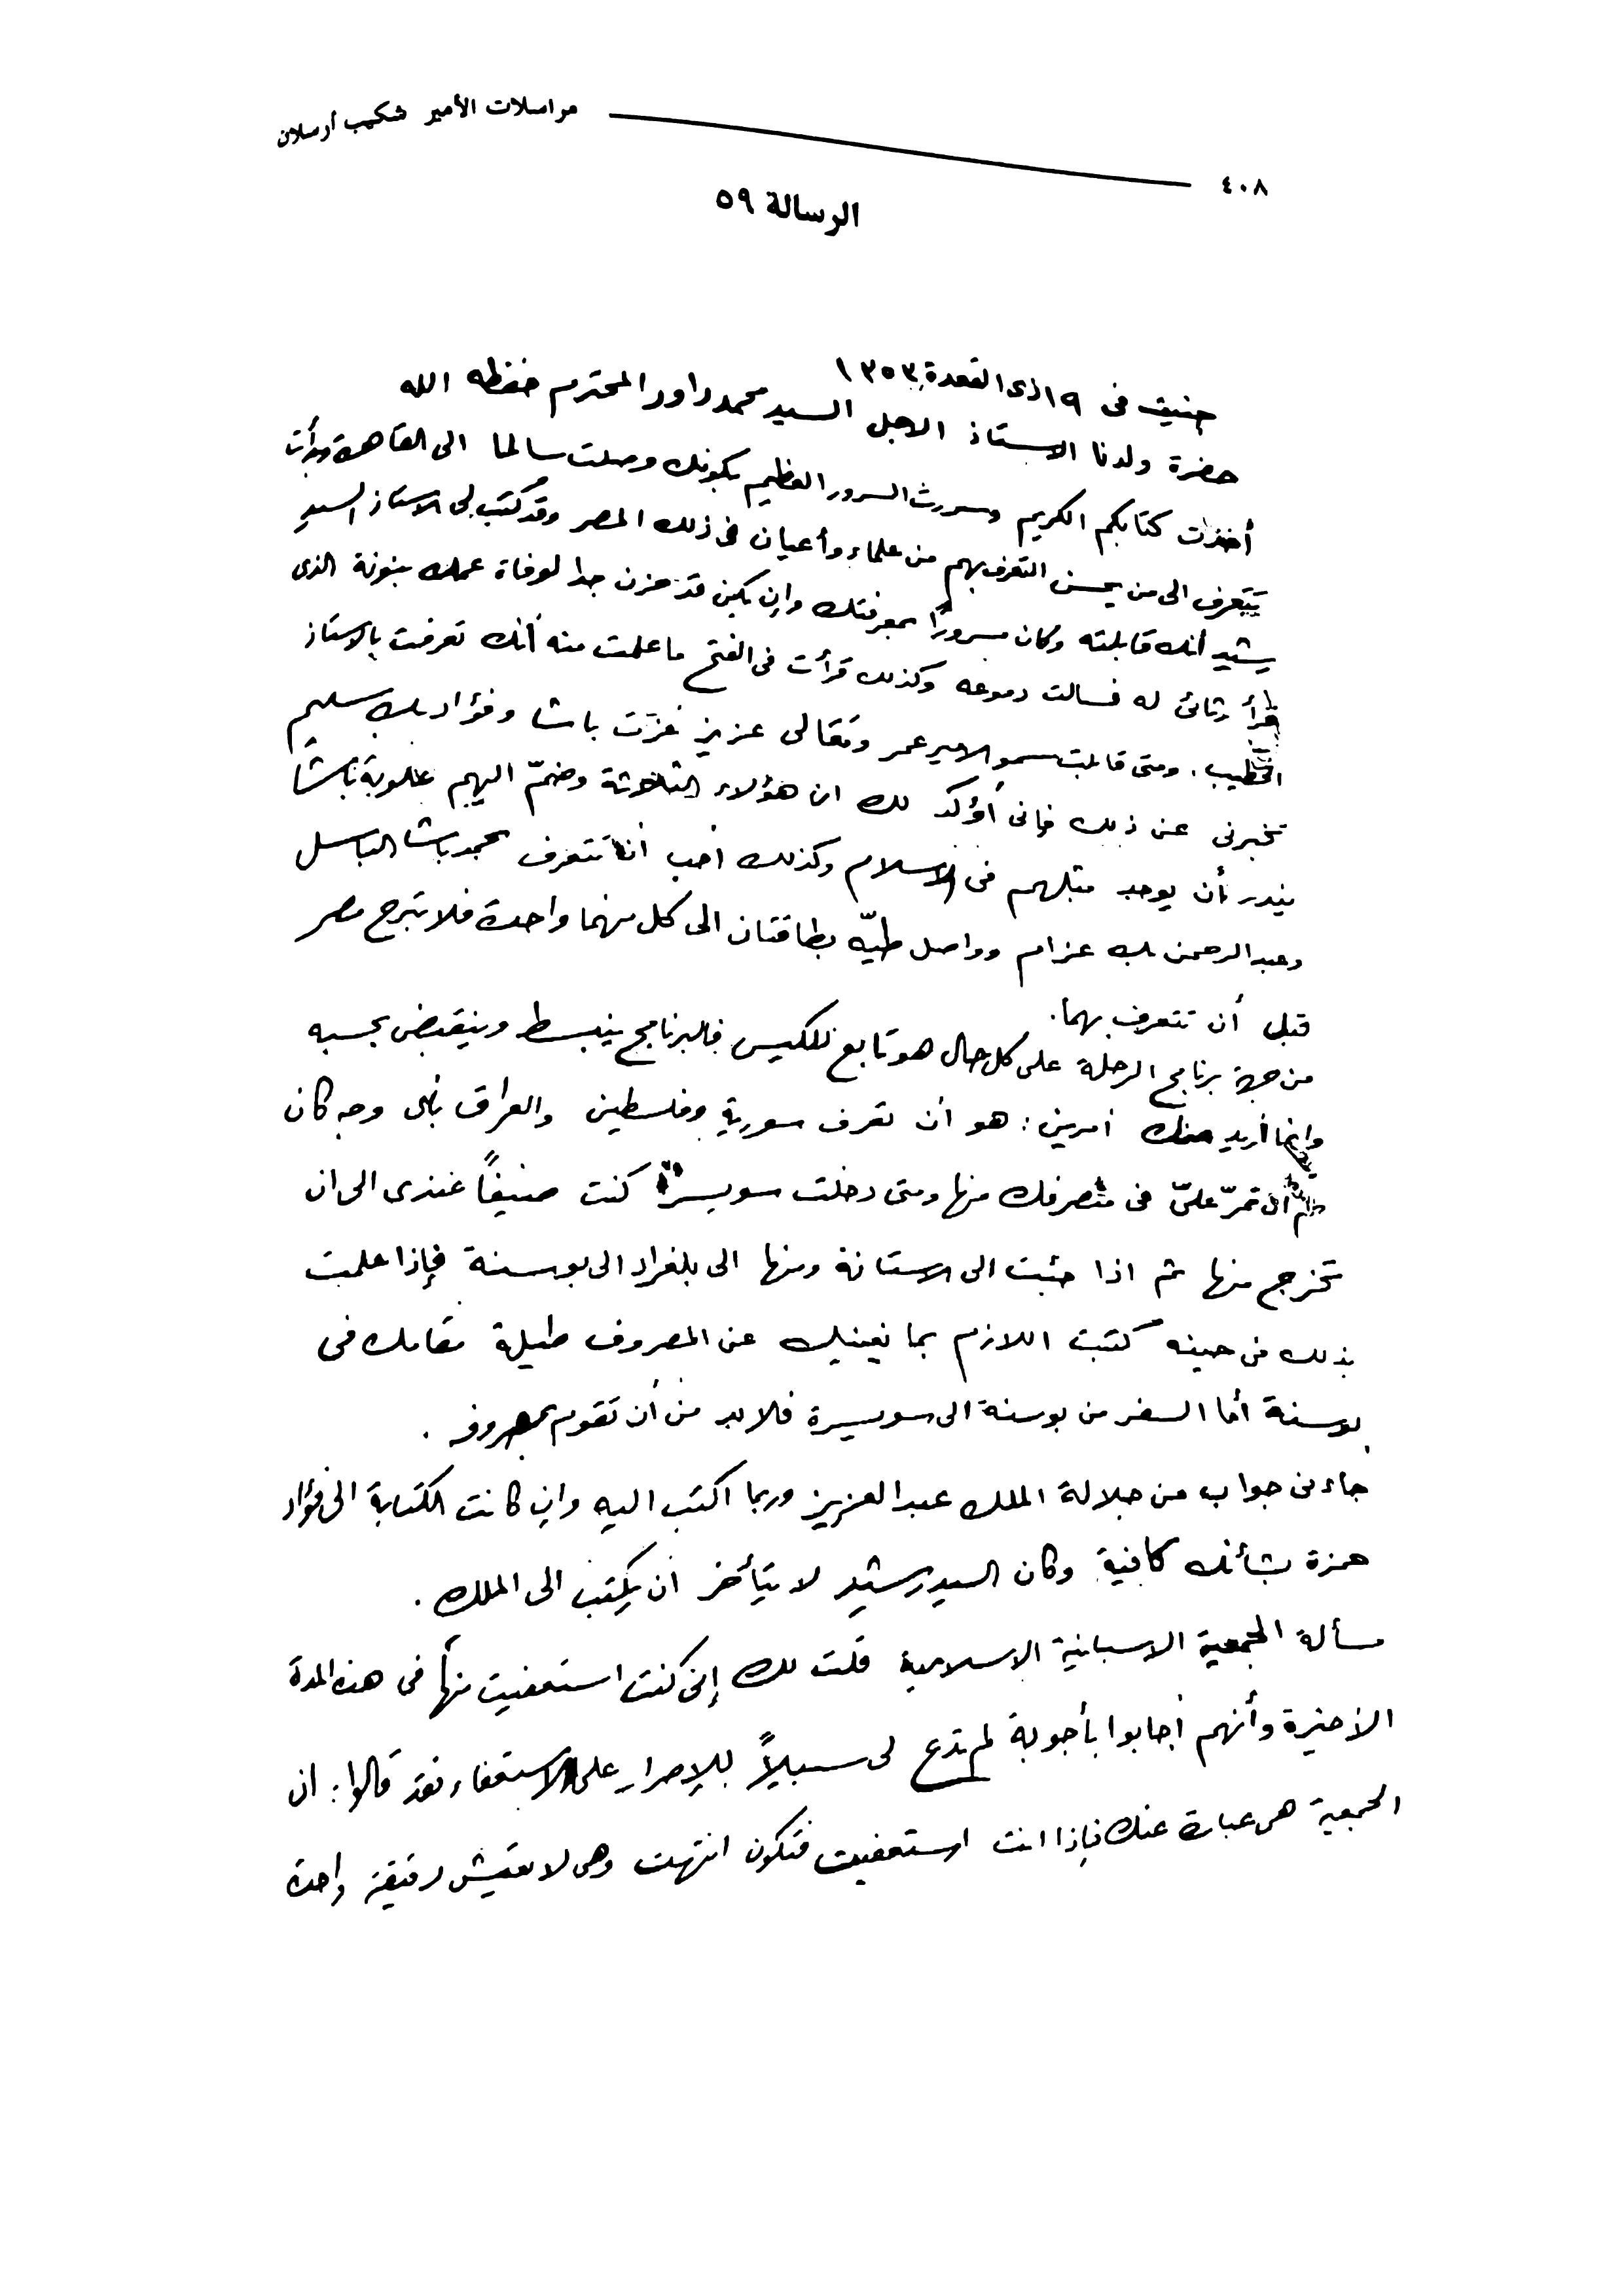 ٤٠٨ مراسلات الأمير شكيب أرسلان
الرسالة ٥٩
جنيف فى ١٩ ذى القعدة ١٣٥٣
حضرة ولدنا الاستاذ الاجل السيد محمد داود المحترم حفظه الله
أخذت كتابكم الكريم وسررت السرور العظيم بكونك وصلت سالما الى القاهرة وبدأت
تتعرف الى من يحسن التعرف بهم من علماء وأعيان فى ذلك المصر وقد كتب لى الاستاذ السيد
رشيد أنك قابلته وكان مسرورًا بمعرفتك وان يكن قد حزن جدا لوفاة عمك بنونة الذى
قرأ رثائى له فسالت دموعه وكذلك قرأت فى الفتح ما علمت منه أنك تعرفت بالاستاذ
الخطيب. ومتى قابلت سمو الامير عمر ومعالى عزيز عزت باشا وفؤاد بك سليم
تخبرنى عن ذلك فانى أؤكد لك ان هؤلاء الثلاثة وضمّ اليهم علوبة باشا
يندر أن يوجد مثلهم فى الاسلام وكذلك أحب أن تتعرف بحمد باشا الباسل
وعبد الرحمن بك عزام وواصل طيّه بطاقتان الى كل منهما واحدة فلا تبرح مصر
قبل أن تتعرف بهما.
من جهة برنامج الرحلة على كل حال هو تابع للكيس فالبرنامج ينبسط وينقبض بحسبه
وانما أريد منك أمرين : هو أن تعرف سورية وفلسطين والعراق بأى وجه كان
أن تمرّ علىّ فى منصرفك منها ومتى دخلت سويسرّة كنت ضيفًا عندى الى ان
تخرج منها ثم اذا جئت الى الاستانة ومنها الى بلغراد الى بوسنة فإذا علمت
بذلك فى حينه كتبت اللازم بما يغنيك عن المصروف طيلة مقامك فى
بوسنة أما السفر من بوسنة الى سويسرة فلا بد من أن تقوم بمصروفه .
جاءنى جواب من جلالة الملك عبد العزيز وربما اكتب اليه وان كانت الكتابة الى فؤاد
حمزة بشأنك كافية وكان السيد رشيد لا يتأخر ان يكتب الى الملك .
مسألة الجمعية الاسبانية الاسلامية قلت لك إنى كنت استعفيت منها فى هذه المدة
الأخيرة وأنهم أجابوا بأجوبة لم تدع لى سبيلاً للإصرار على الاستعفاء فقد قالوا : ان
الجمعية هى عبارة عنك فإذا انت استعفيت فتكون انتهت وهى لا تعيش دقيقة واحدة